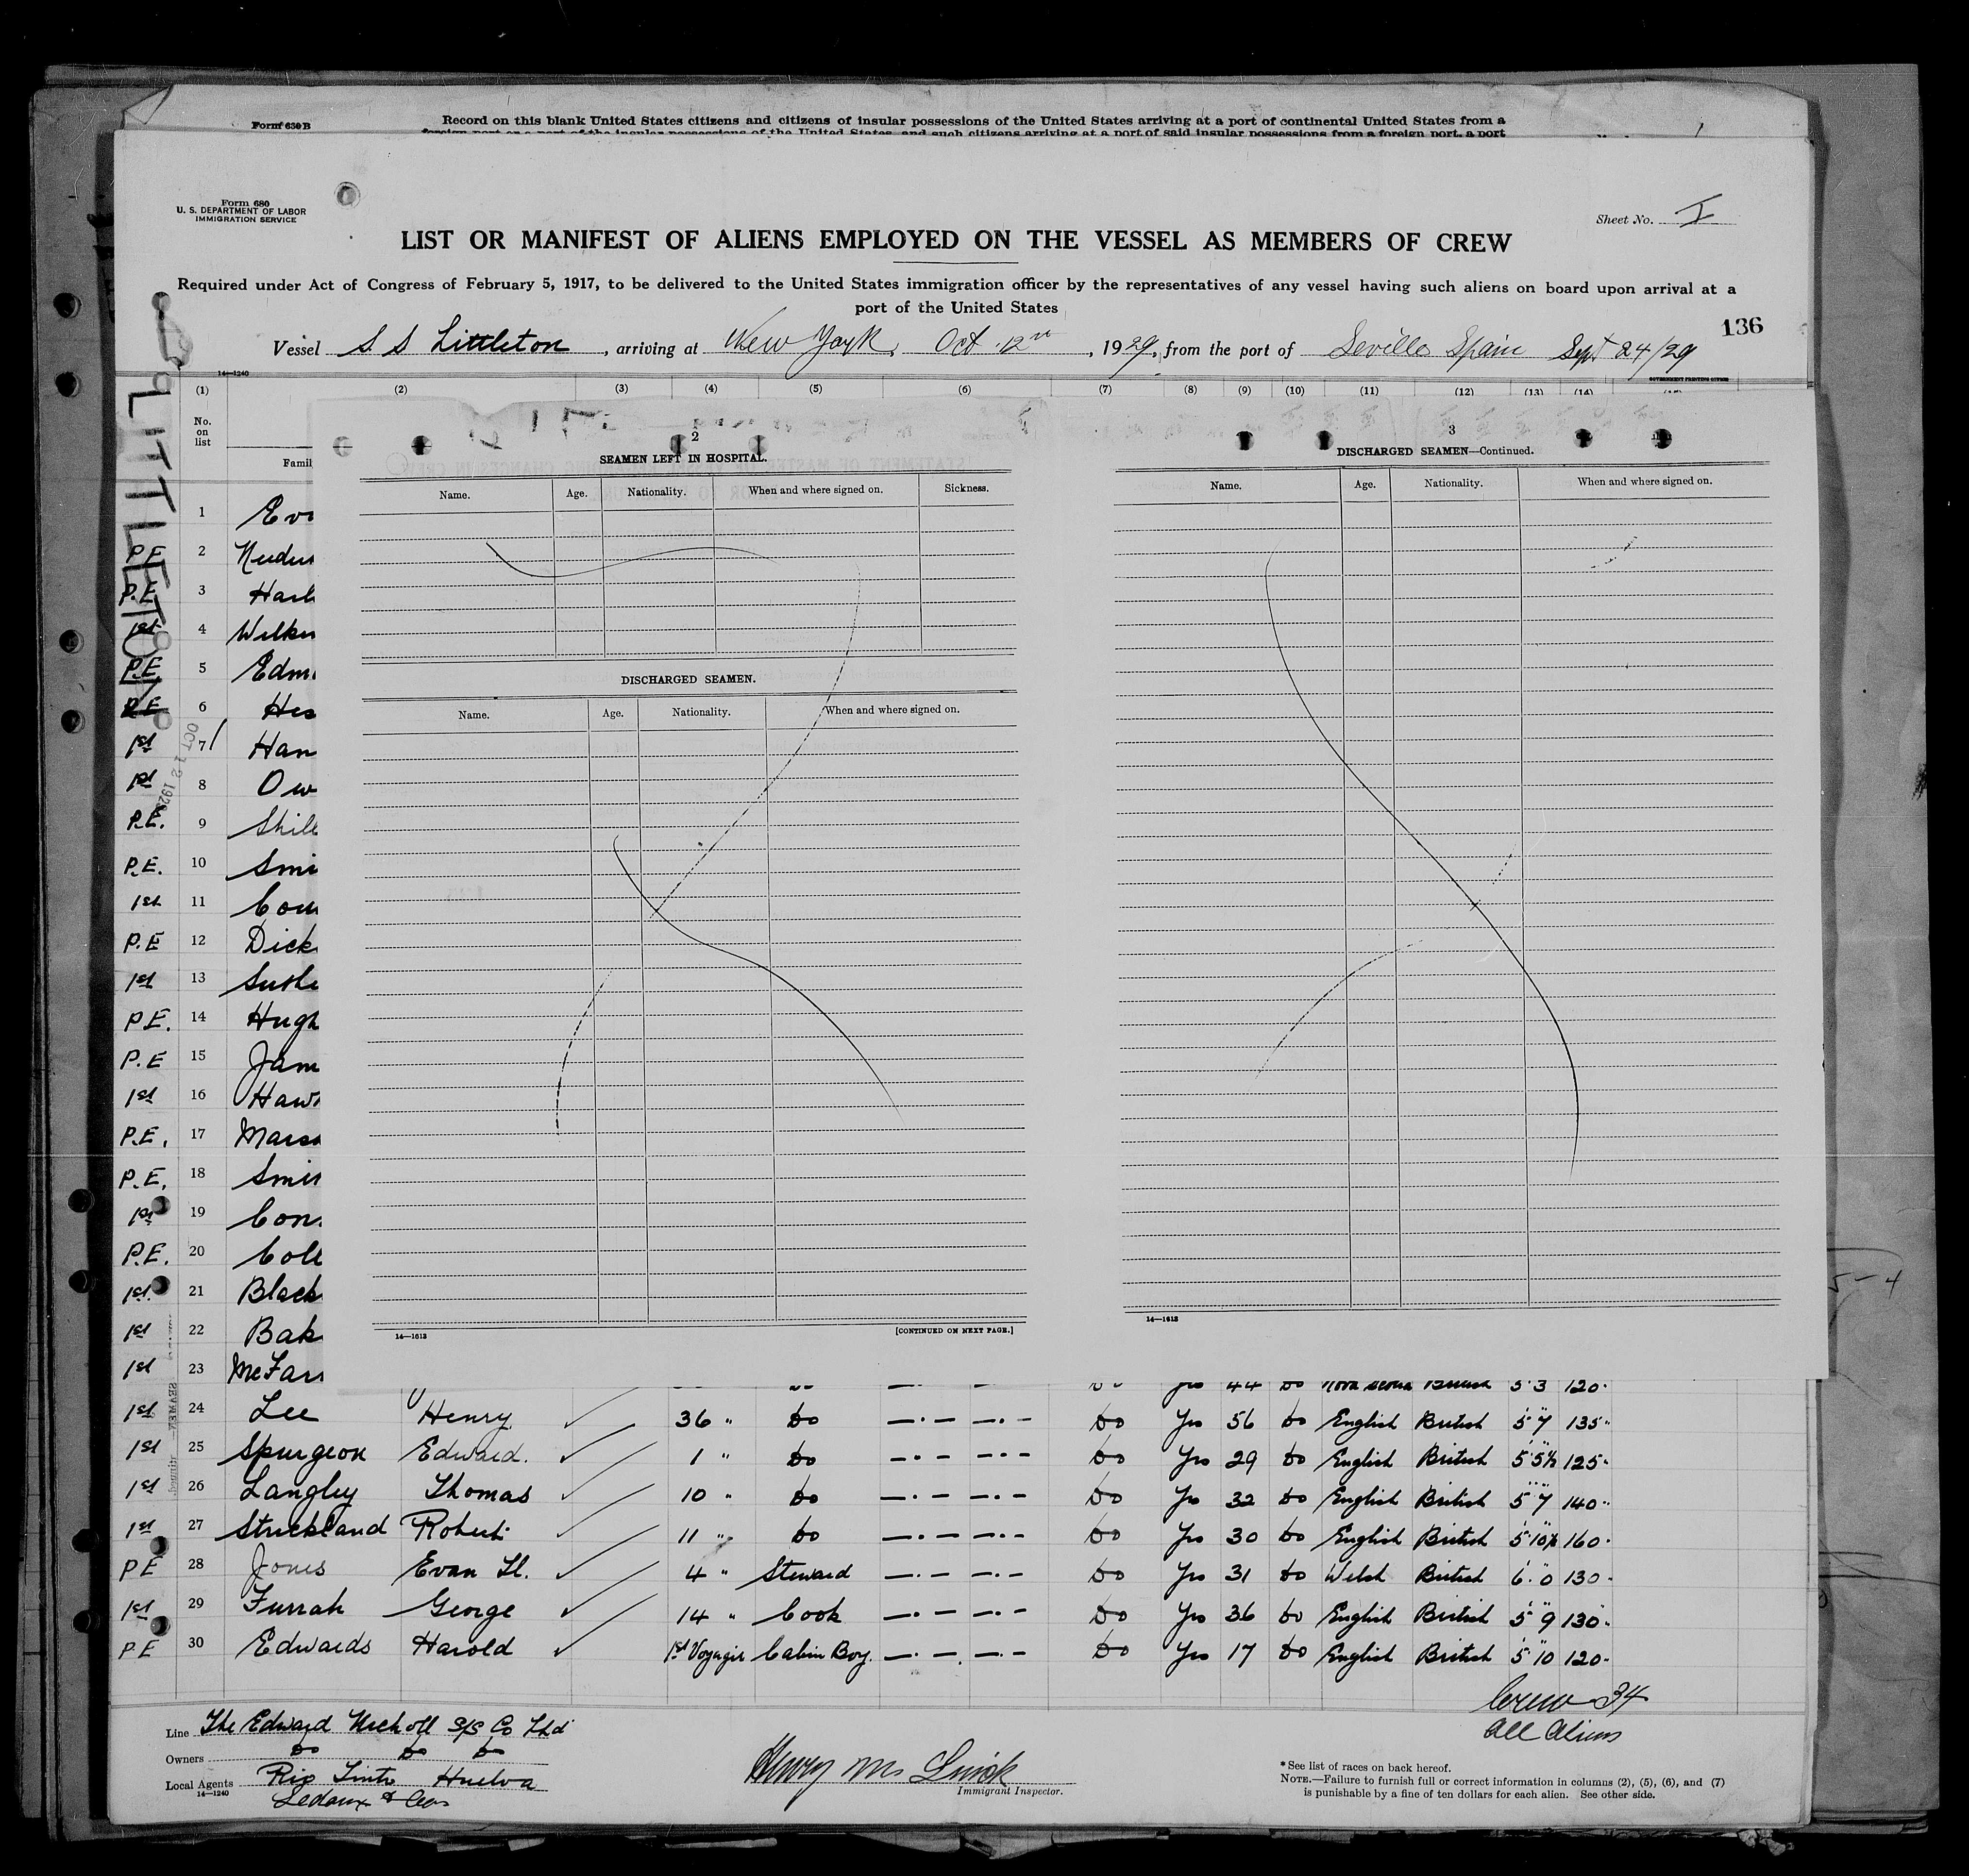 Form 630 B
Record on this blank United States citizens and citizens of insular possessions of the United States arriving at a port of continental United States from a
foreign port or a port of the insular possessions of the United States, and such citizens arriving at a port of said insular possessions from a foreign port, a port
Form 680
U. S. DEPARTMENT OF LABOR
IMMIGRATION SERVICE
Sheet No. I
LIST OR MANIFEST OF ALIENS EMPLOYED ON THE VESSEL AS MEMBERS OF CREW
Required under Act of Congress of February 5, 1917, to be delivered to the United States immigration officer by the representatives of any vessel having such aliens on board upon arrival at a
port of the United States
136
Vessel S S Littleton, arriving at New York, Oct. 12th, 1929, from the port of Seville Spain Sept 24/29
14—1240
GOVERNMENT PRINTING OFFICE
(1) (2) (3) (4) (5) (6) (7) (8) (9) (10) (11) (12) (13) (14)
No. on list
Famil
LITTLETON
OCT 12 1929
2
SEAMEN LEFT IN HOSPITAL.
Name. Age. Nationality. When and where signed on. Sickness.
DISCHARGED SEAMEN.
Name. Age. Nationality. When and where signed on.
14—1613 [CONTINUED ON NEXT PAGE.]
3
DISCHARGED SEAMEN—Continued.
Name. Age. Nationality. When and where signed on.
14—1613
1 Eva
P.E 2
P.E 3 Harl
1st 4 Wilkin
P.E. 5 Edm
P.E 6 Hes
1st 7 Han
1st 8 Ow
P.E. 9 Skill
P.E. 10 Smi
1st 11 Cou
P.E 12 Dick
1st 13 Suthe
P.E. 14 Hugh
P.E 15 Jam
1st 16 Haw
P.E. 17 Mars
P.E. 18 Smi
1st 19 Con
P.E. 20 Coll
1st 21 Black
1st 22 Bak
1st 23 McFar Yes 44 Do Nova Scotia British 5 3 120
1st 24 Lee Henry 36 " Do —·— —·— Do Yes 56 Do English British 5 7 135
1st 25 Spurgeon Edward. 1 " Do —·— —·— Do Yes 29 Do English British 5 5½ 125
1st 26 Langley Thomas 10 " Do —·— —·— Do Yes 32 Do English British 5 7 140
1st 27 Strickland Robert 11 " Do —·— —·— Do Yes 30 Do English British 5 10½ 160
PE 28 Jones Evan Ll. 4 " Steward —·— —·— Do Yes 31 Do Welsh British 6 0 130
1st 29 Furrah George 14 " Cook —·— —·— Do Yes 36 Do English British 5 9 130
PE 30 Edwards Harold 1st Voyage Cabin Boy. —·— —·— Do Yes 17 Do English British 5 10 120
Crew 34
All Aliens
Line The Edward Nicholl S/S Co Ltd
Owners Do Do Do
Local Agents Rio Tinto Huelva
14—1240
Immigrant Inspector.
* See list of races on back hereof.
NOTE.—Failure to furnish full or correct information in columns (2), (5), (6), and (7)
is punishable by a fine of ten dollars for each alien. See other side.
5 – 4